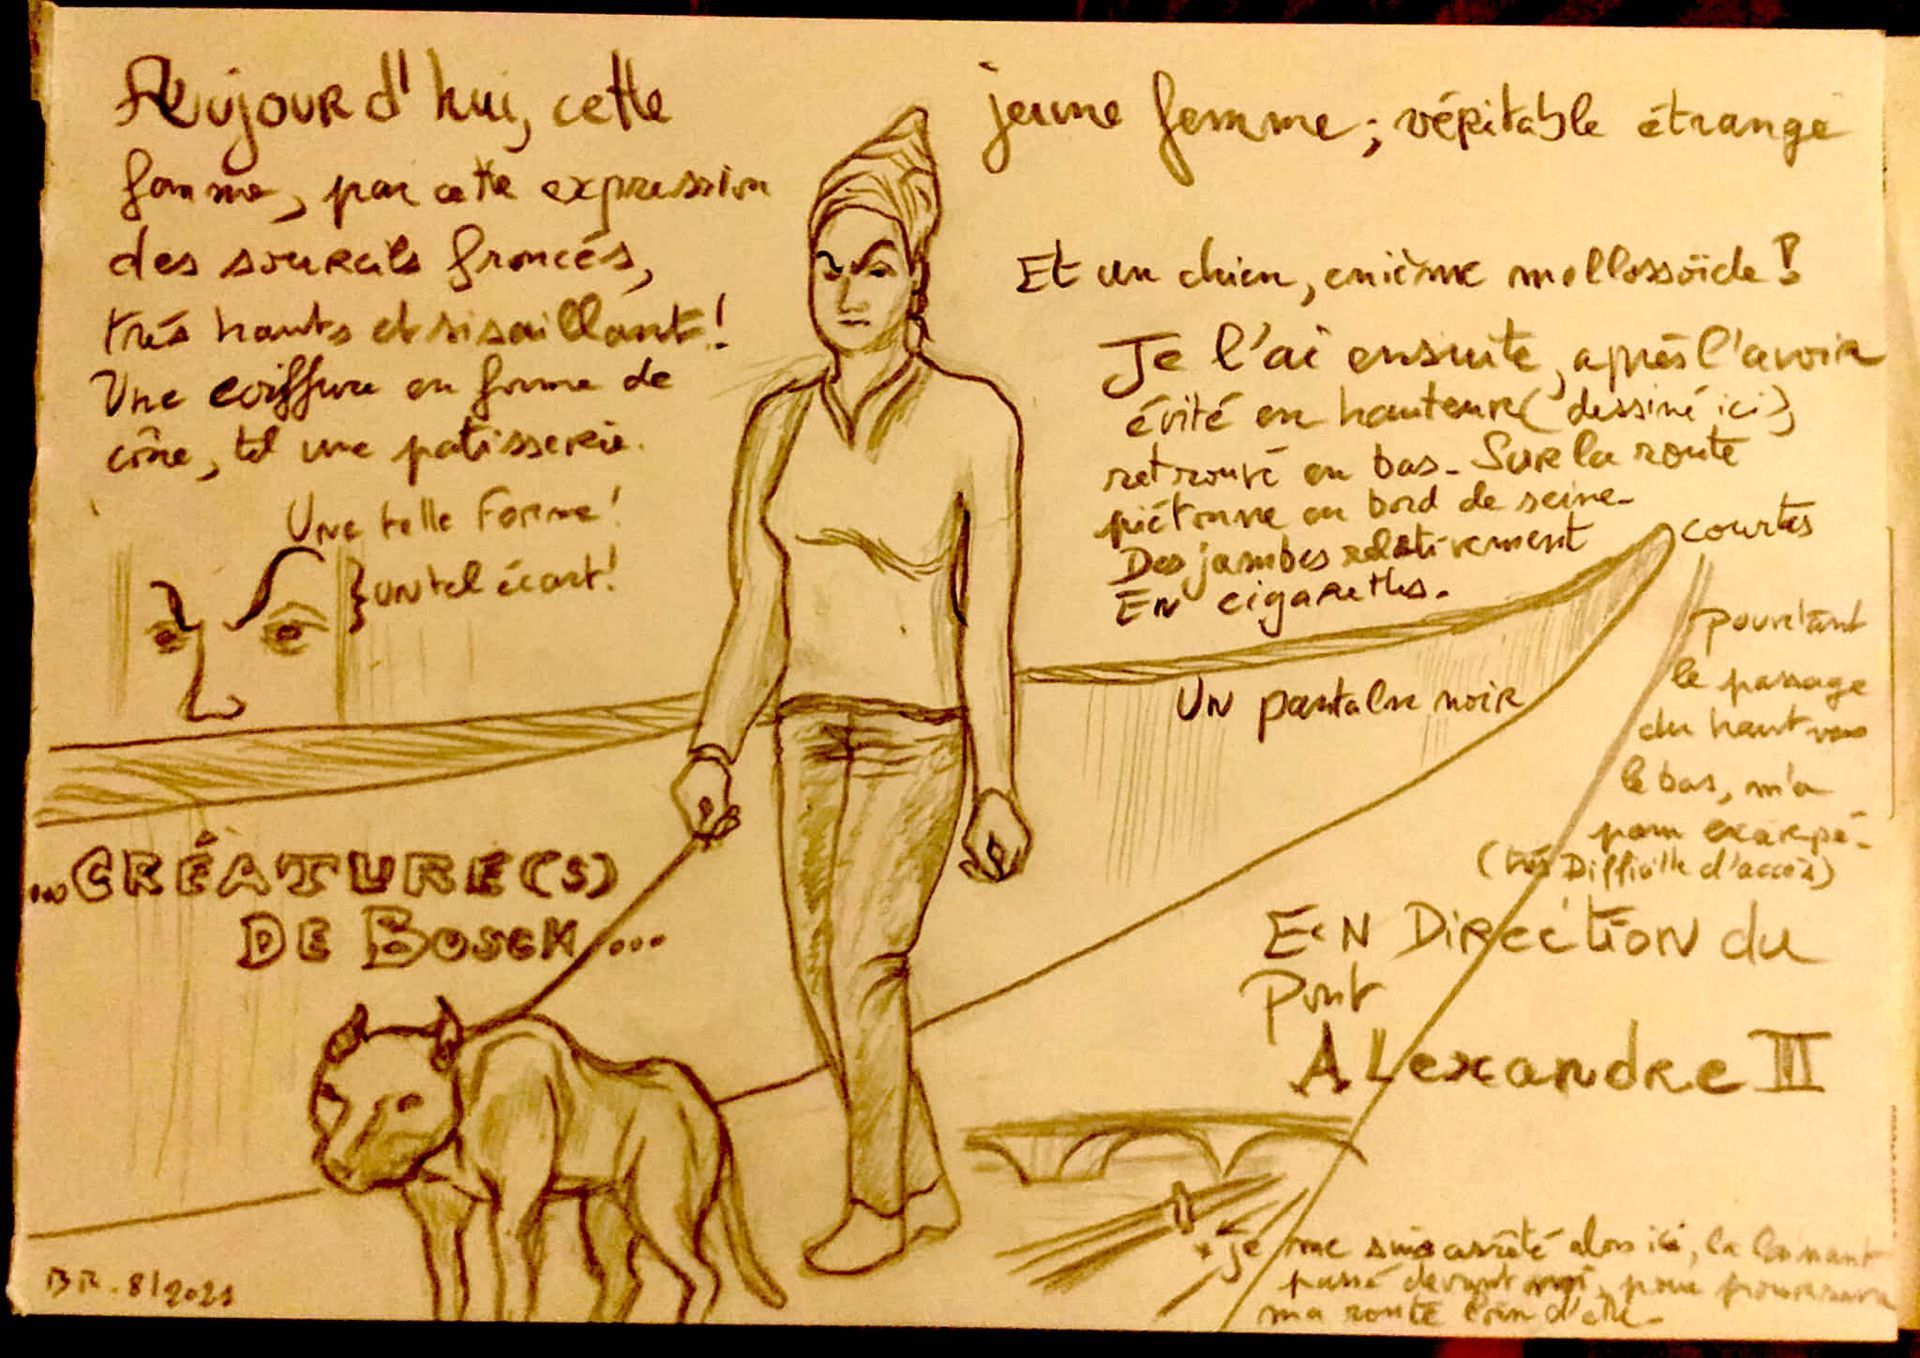 Aujourd'hui, cette jeune femme ; véritable étrange
femme, par cette expression
des sourcils froncés,
très hauts et sisaillant !
Une coiffure en forme de
cône, tel une patisserie.
Une telle Forme !
un tel écart !
Et un chien, enième mollossoïde !
Je l'ai ensuite, après l'avoir
évité en hauteur (dessiné ici),
retrouvé en bas - Sur la route
piétonne en bord de seine -
Des jambes relativement courtes
EN cigarettes.
Un pantalon noir
pourtant
le passage
du haut vers
le bas, m'a
paru escarpé -
(très Difficile d'accès)
...CRÉATURE(S)
DE BOSCH...
EN Direction du
Pont
ALexandre III
* je me suis arrêté alors ici, la laissant
passé devant moi, pour poursuivre
ma route loin d'elle -
BR. 8/2021